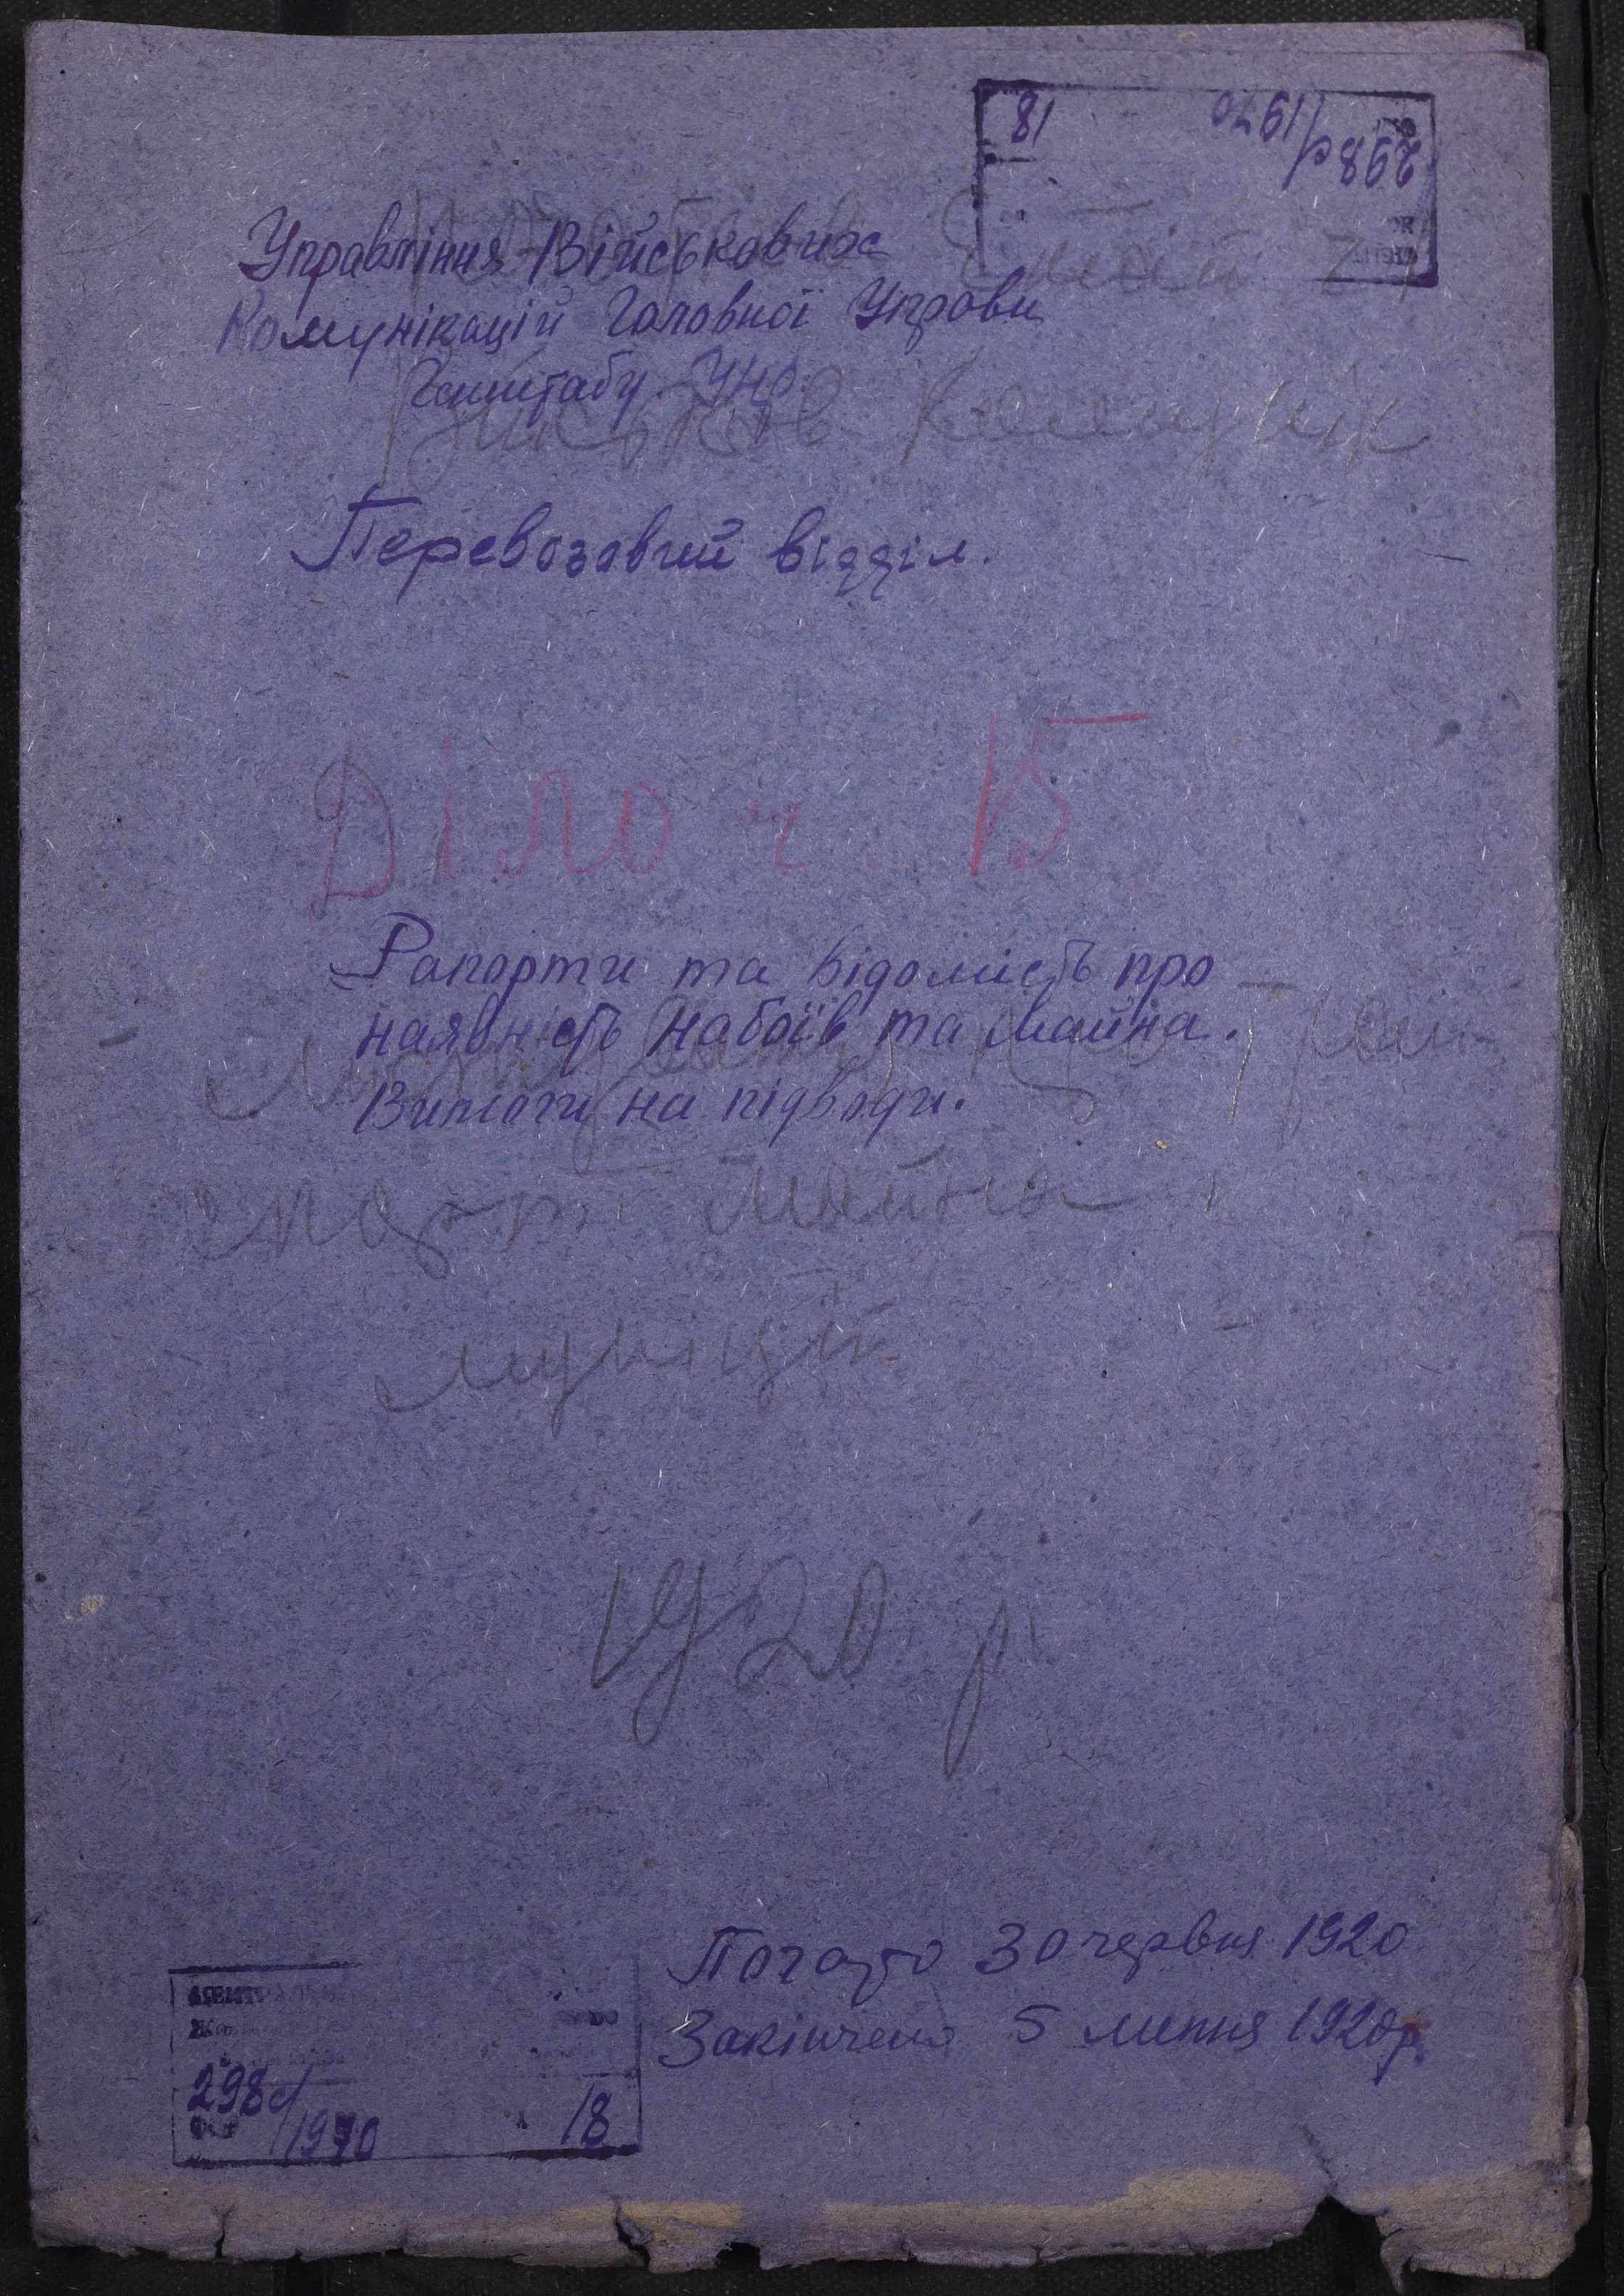 18
1970
298с/
Управління Військових
Комунікацій Головної Управи
Генштабу УНР.
Військов Комунік
Перевозовчий відділ.
Діло ч. 15
Рапорти та відомість про
наявність набоїв та майна.
Вимоги на підводи.
майна
муніцій
1920 р.
Почато 30 червня 1920
Закінчено 5 липня 1920р.
ЦЕНТРАЛЬН
298с/
1970
18